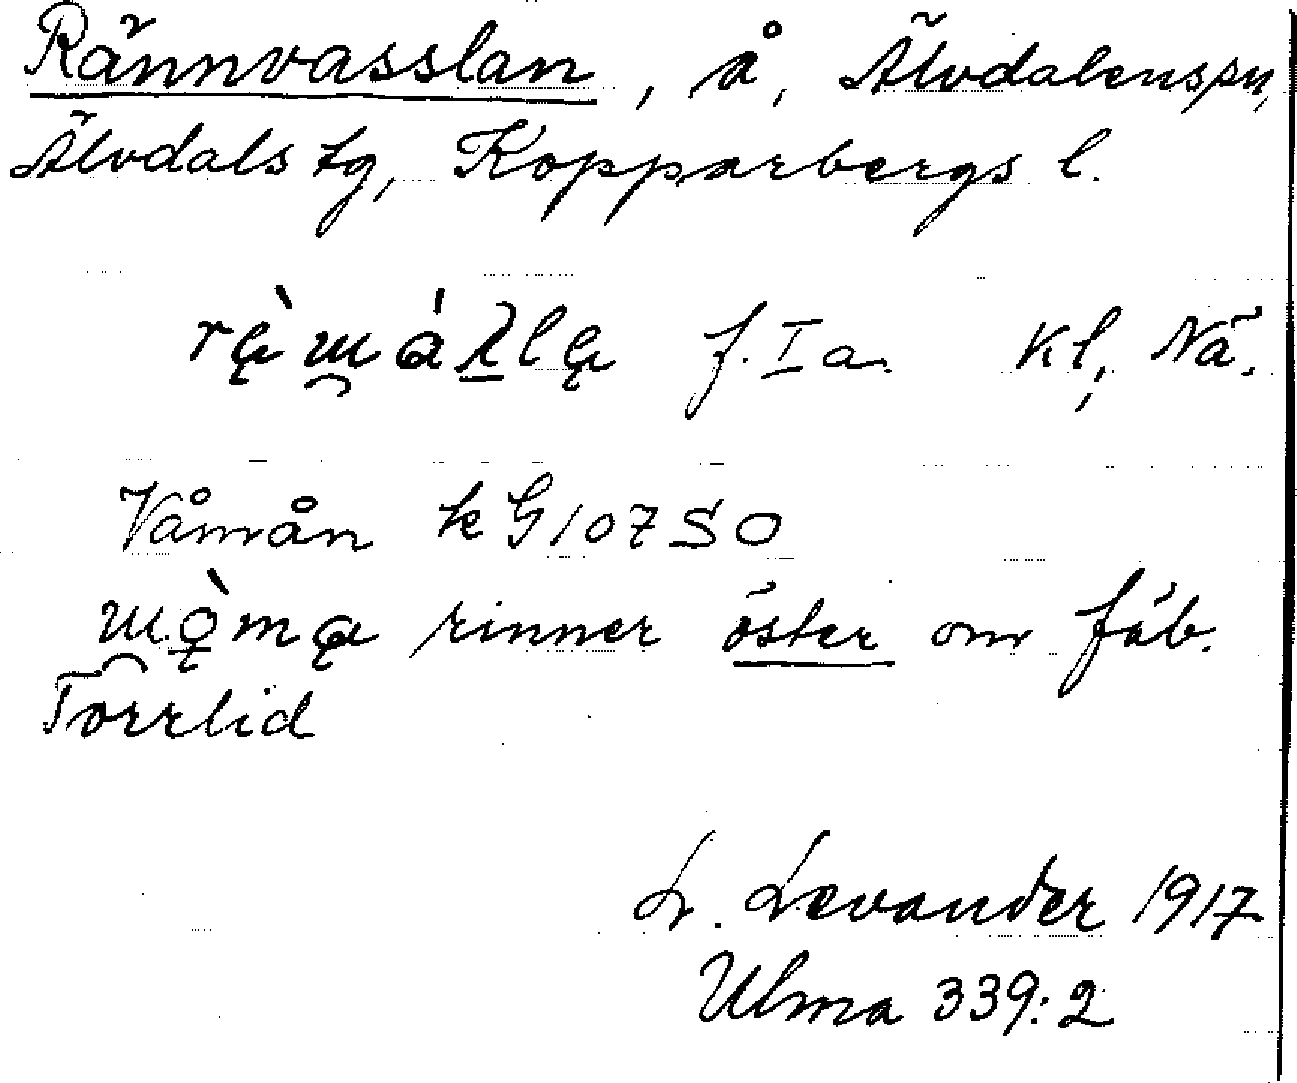 Rännvasslan, å, Älvdalens sn,
Älvdals tg, Kopparbergs l.
f. I a. Kl, Nä.
Våmån k G 107 SO
rinner öster om fäb.
Torrlid
L. Levander 1917
Ulma 339:2